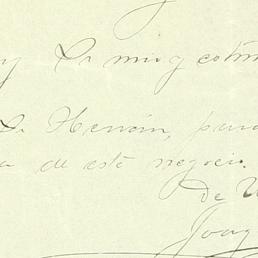 y Dr muy estim
Dr Herrán, para
a de este negocio.
De U
Joaq